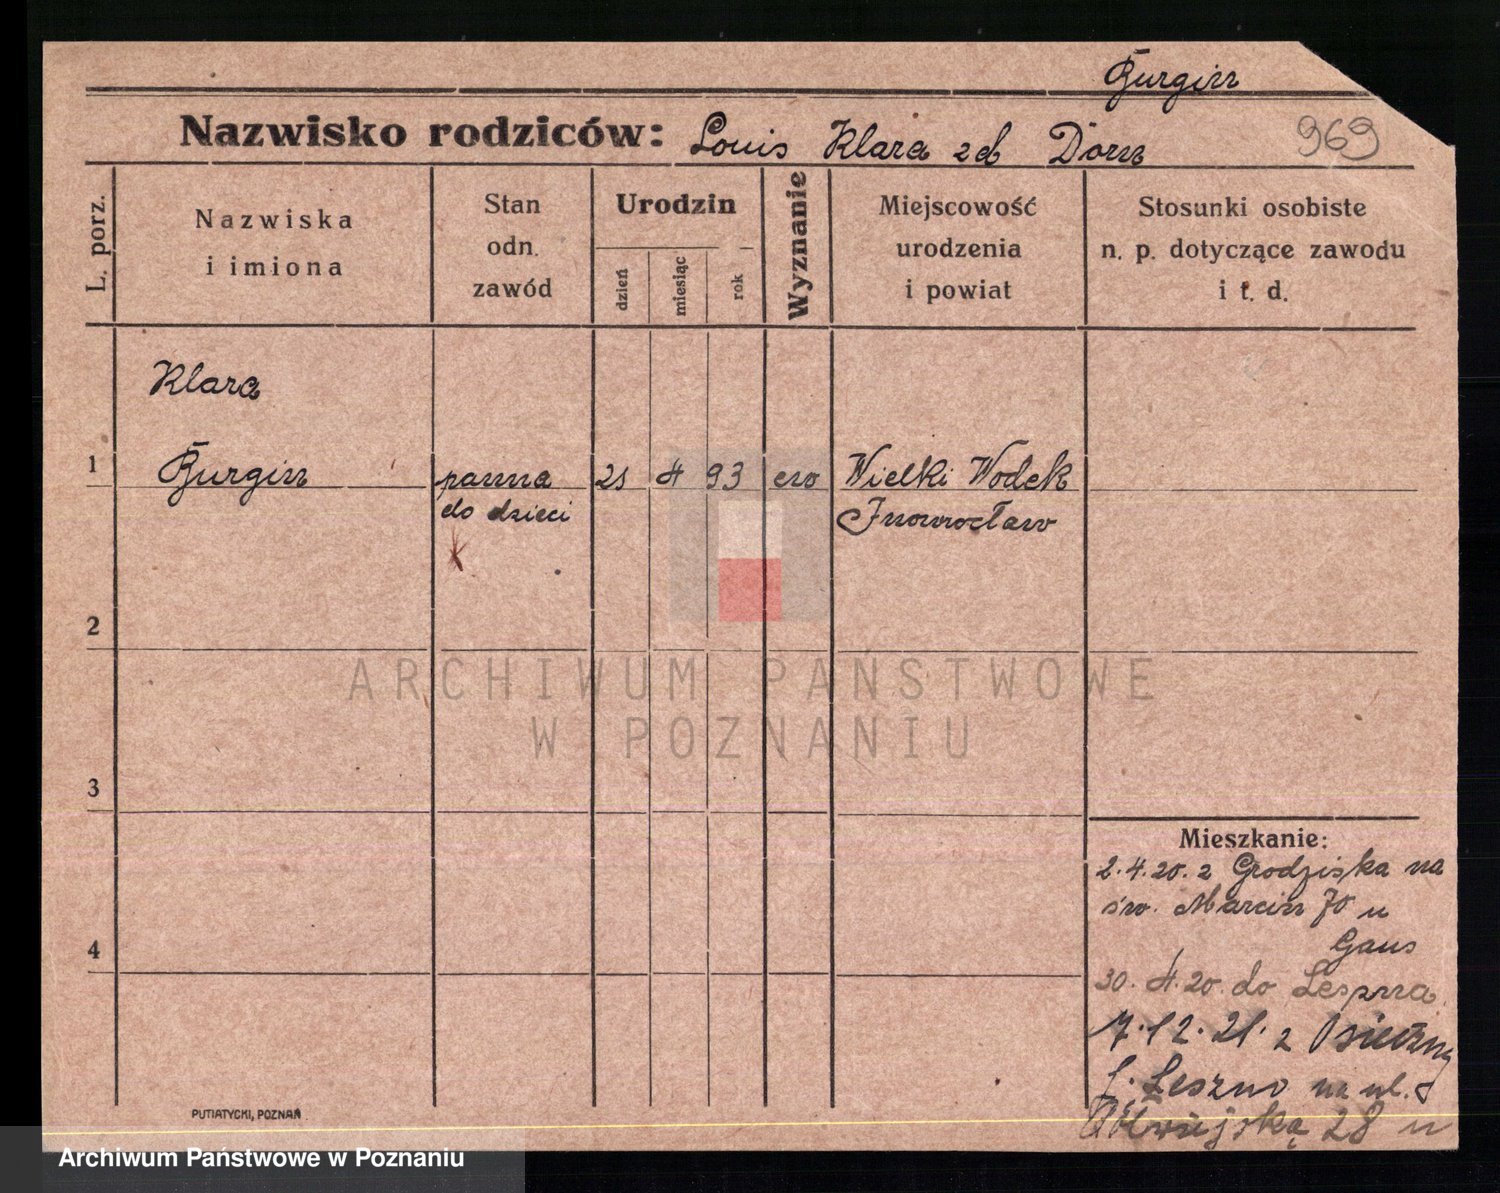 Burgin
Nazwisko rodziców: Louis Klara zd Dorn 969
L. porz.
Nazwiska
i imiona
Stan
odn.
zawód
Urodzin
dzień
miesiąc
rok
Wyznanie
Miejscowość
urodzenia
i powiat
Stosunki osobiste
n. p. dotyczące zawodu
i t. d.
Klara
1 Burgin panna 21 4 93 ew Wielki Wodek
do dzieci Inowrocław
2
ARCHIWUM PAŃSTWOWE
W POZNANIU
3
Mieszkanie:
2.4.20. z Grodziska na
św. Marcin 70 u
4
Gaus
30. 4. 20. do Leszna
7.12.21. z
Leszno na ul.
28 u
PUTIATYCKI, POZNAŃ
Archiwum Państwowe w Poznaniu